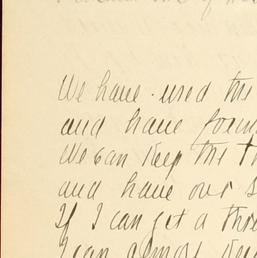 We have used the
and have found
We can keep the
and have our
If I can get a three
I can almost keep